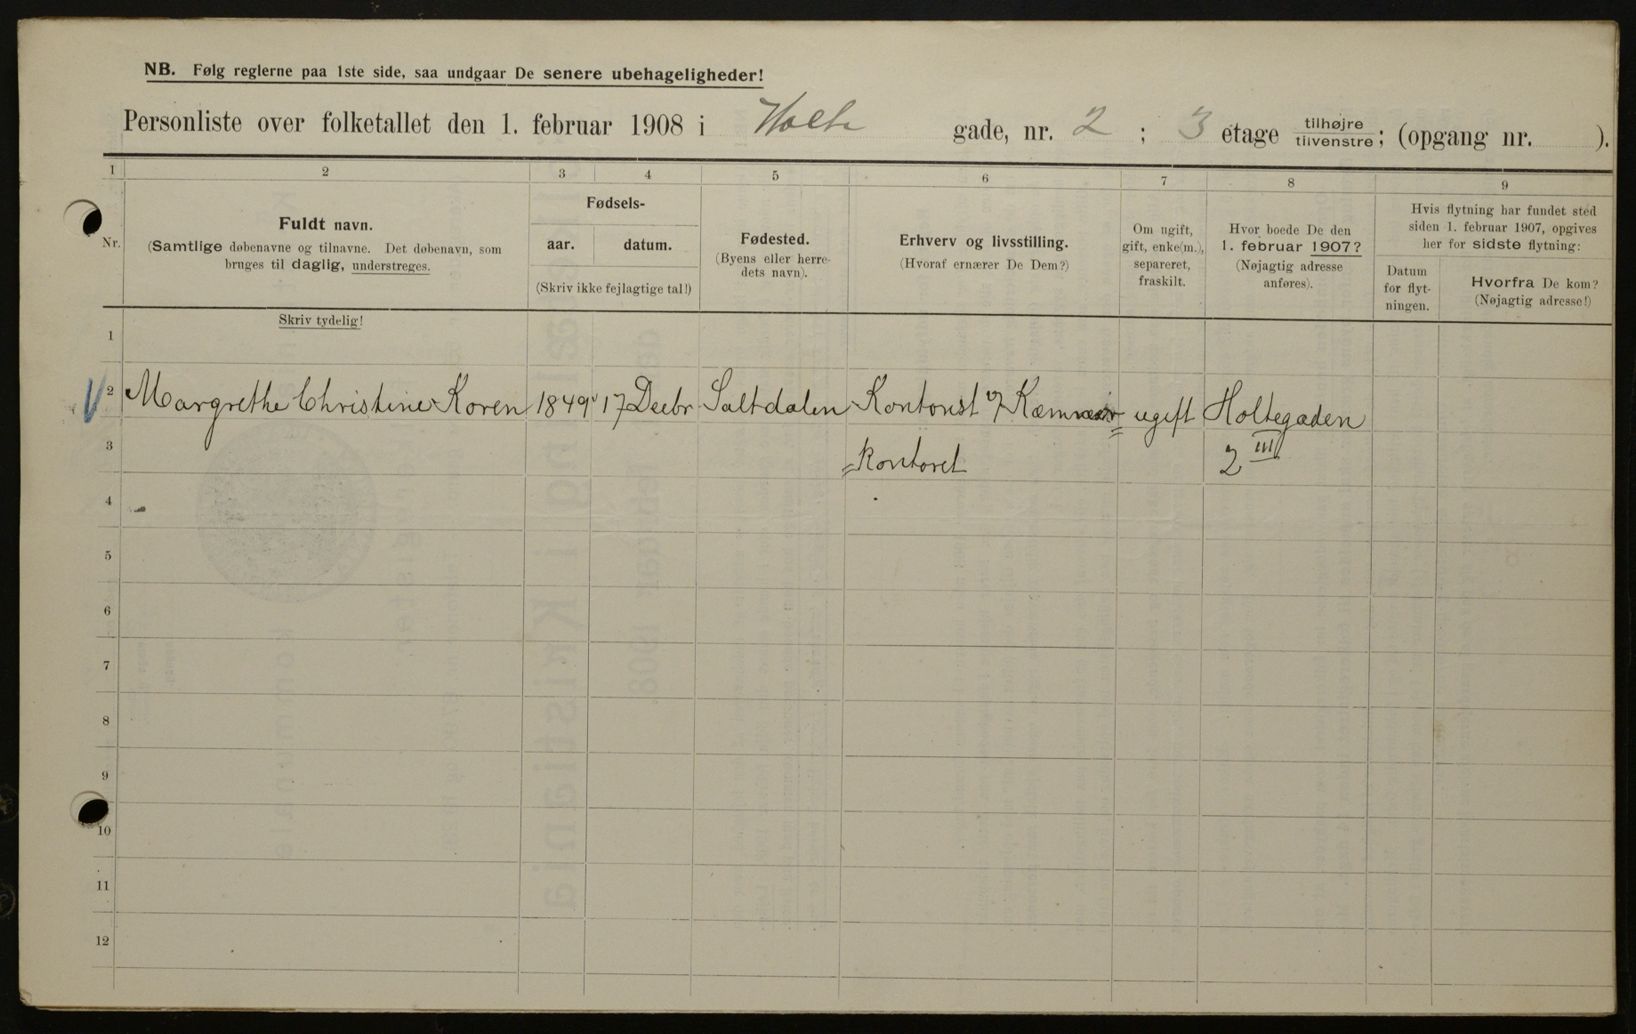 NB. Følg reglerne paa 1ste side, saa undgaar De senere ubehageligheder!
Personliste over folketallet den 1. februar 1908 i Holte gade, nr. 2 ; 3 etage tilhøjre / tilvenstre ; (opgang nr. ).
1 2 3 4 5 6 7 8 9
Nr.
Fuldt navn.
(Samtlige døbenavne og tilnavne. Det døbenavn, som
bruges til daglig, understreges.
Fødsels-
aar. datum.
(Skriv ikke fejlagtige tal!)
Fødested.
(Byens eller herre-
dets navn).
Erhverv og livsstilling.
(Hvoraf ernærer De Dem?)
Om ugift,
gift, enke(m.),
separeret,
fraskilt.
Hvor boede De den
1. februar 1907?
(Nøjagtig adresse
anføres).
Hvis flytning har fundet sted
siden 1. februar 1907, opgives
her for sidste flytning:
Datum
for flyt-
ningen.
Hvorfra De kom?
(Nøjagtig adresse!)
Skriv tydelig!
1
2 Margrethe Christine Koren 1849 17 Decbr Saltdalen Kontorist v/ Kæmner= ugift Holtegaden
3 =kontoret 2 III
4
5
6
7
8
9
10
11
12